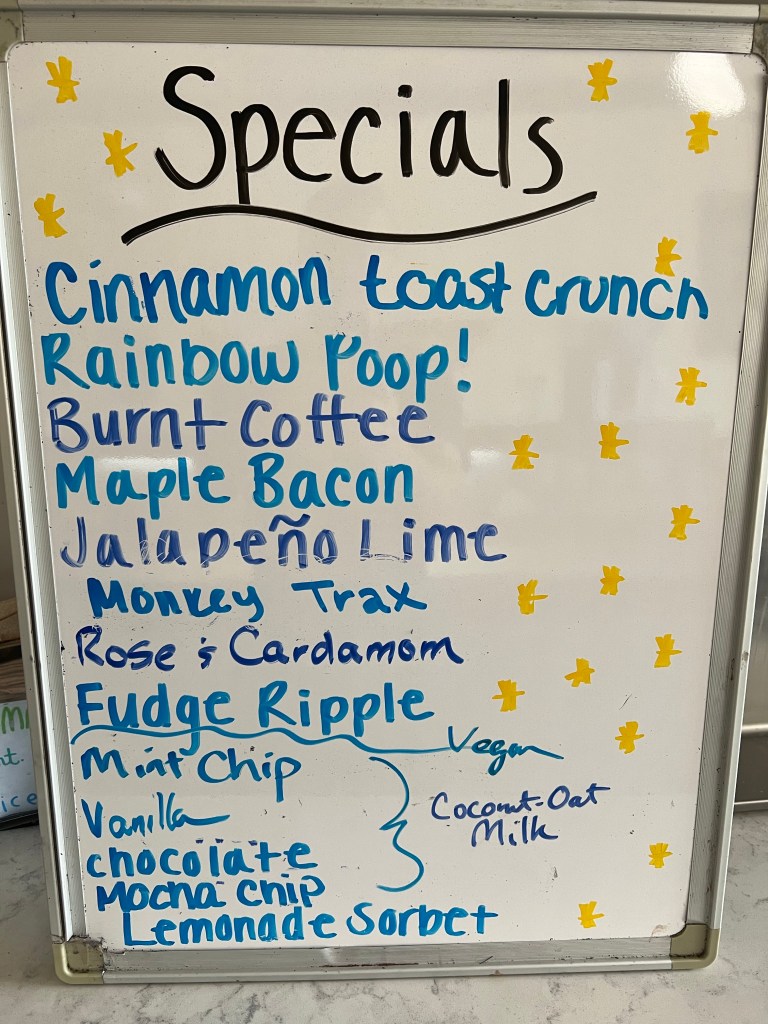 Specials
Cinnamon toast crunch
Rainbow Poop!
Burnt Coffee
Maple Bacon
Jalapeño Lime
Monkey Trax
Rose & Cardamom
Fudge Ripple
Vegan
Mint Chip
Vanilla
Coconut-Oat
Milk
chocolate
Mocha chip
Lemonade Sorbet